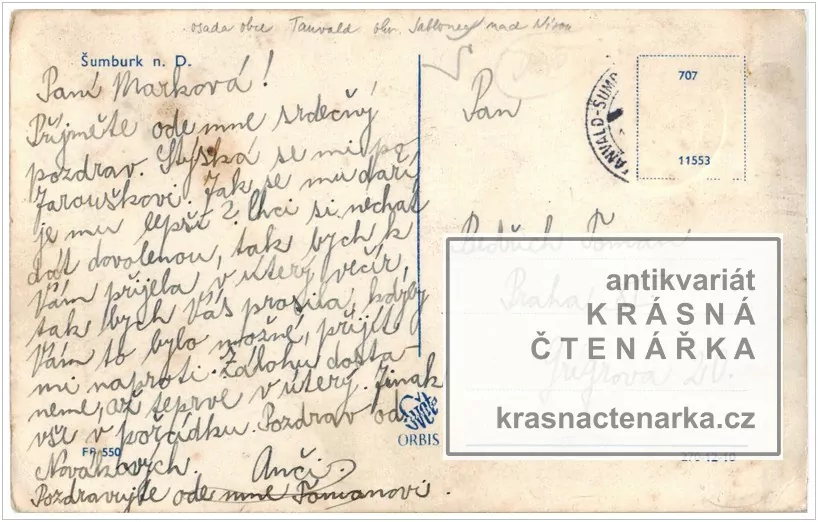 osada obce Tanvald okr. Jablonec nad Nisou
Šumburk n. D.
Paní Marková!
Přijměte ode mne srdečný
pozdrav. Stýská se mi po
Jarouškovi. Jak se mu daří
je mu lepší? Chci si nechat
dát dovolenou, tak bych k
Vám přijela v úterý večír,
tak bych Vás prosila, kdyby
Vám to bylo možné, přijít
mi naproti. Zálohu dosta-
neme, až teprve v úterý. Jinak
vše v pořádku. Pozdrav od
Novákových. Anči.
Pozdravujte ode mne Tomanovi.
FP 550
Svět
ORBIS
Pan
Bedřich Toman
Praha
Grégrova
TANVALD-ŠUMB
707
11553
antikvariát
KRÁSNÁ
ČTENÁŘKA
krasnactenarka.cz